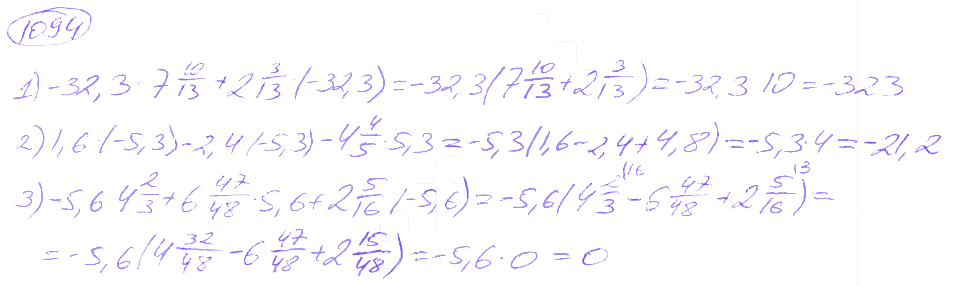 1094
1) -32,3 · 7 10/13 + 2 3/13 · (-32,3) = -32,3 (7 10/13 + 2 3/13) = -32,3 · 10 = -323
2) 1,6 · (-5,3) - 2,4 (-5,3) - 4 4/5 · 5,3 = -5,3 (1,6 - 2,4 + 4,8) = -5,3 · 4 = -21,2
3) -5,6 4 2/3 + 6 47/48 · 5,6 + 2 5/16 (-5,6) = -5,6 (4 2/3 ⁽¹⁶ - 6 47/48 + 2 5/16 ⁽³) =
= -5,6 (4 32/48 - 6 47/48 + 2 15/48) = -5,6 · 0 = 0